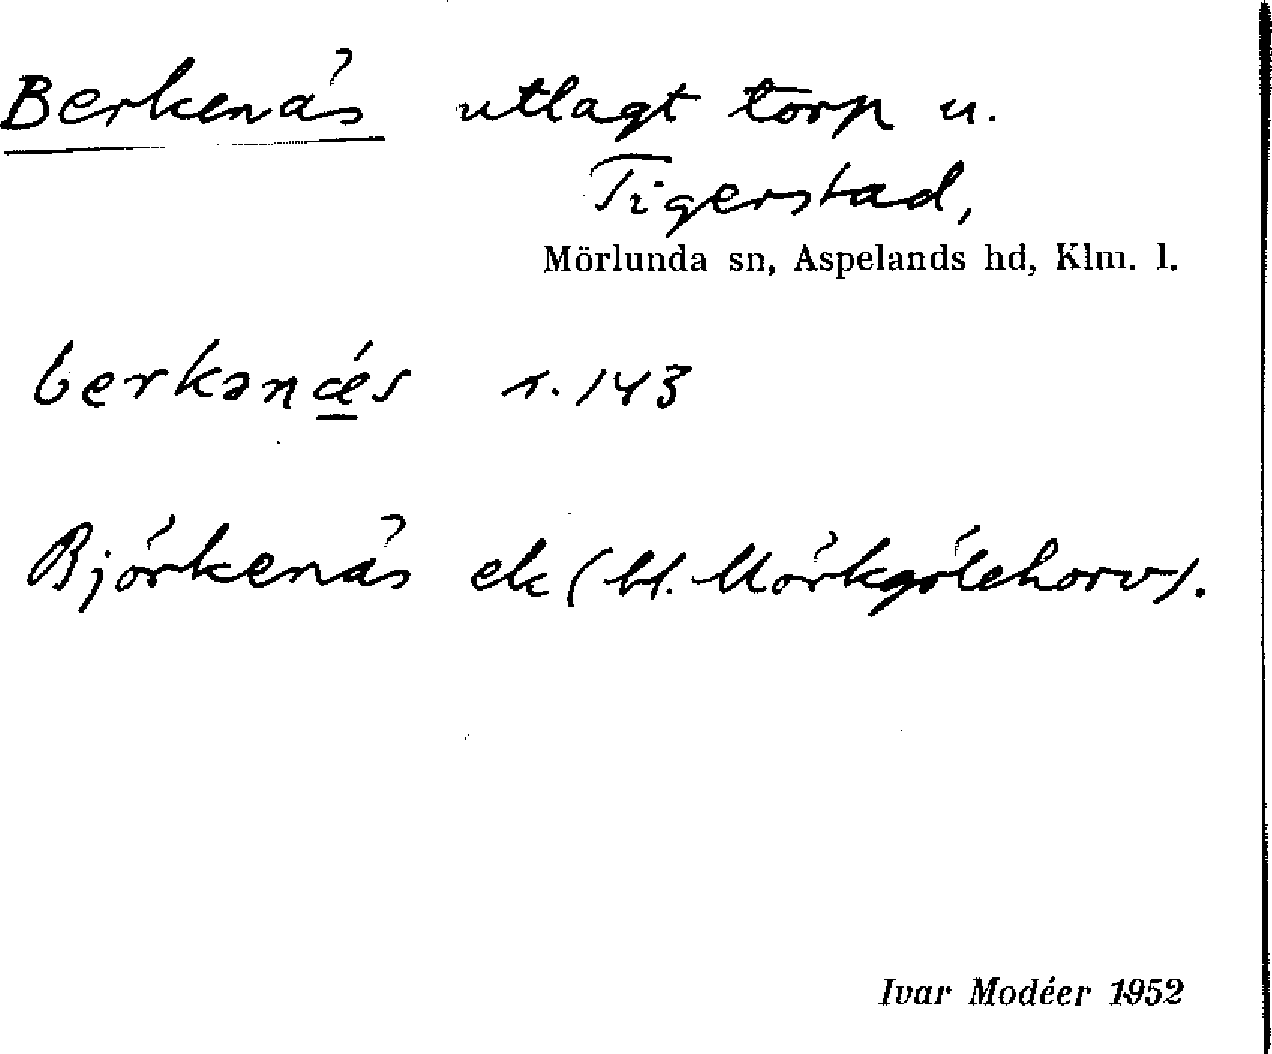 Berkenäs utlagt torp u.
Tigerstad,
Mörlunda sn, Aspelands hd, Klm. l.
berkənǽ̲s s. 143
Björkenäs ek (bl. Mörkgölehorv).
Ivar Modéer 1952